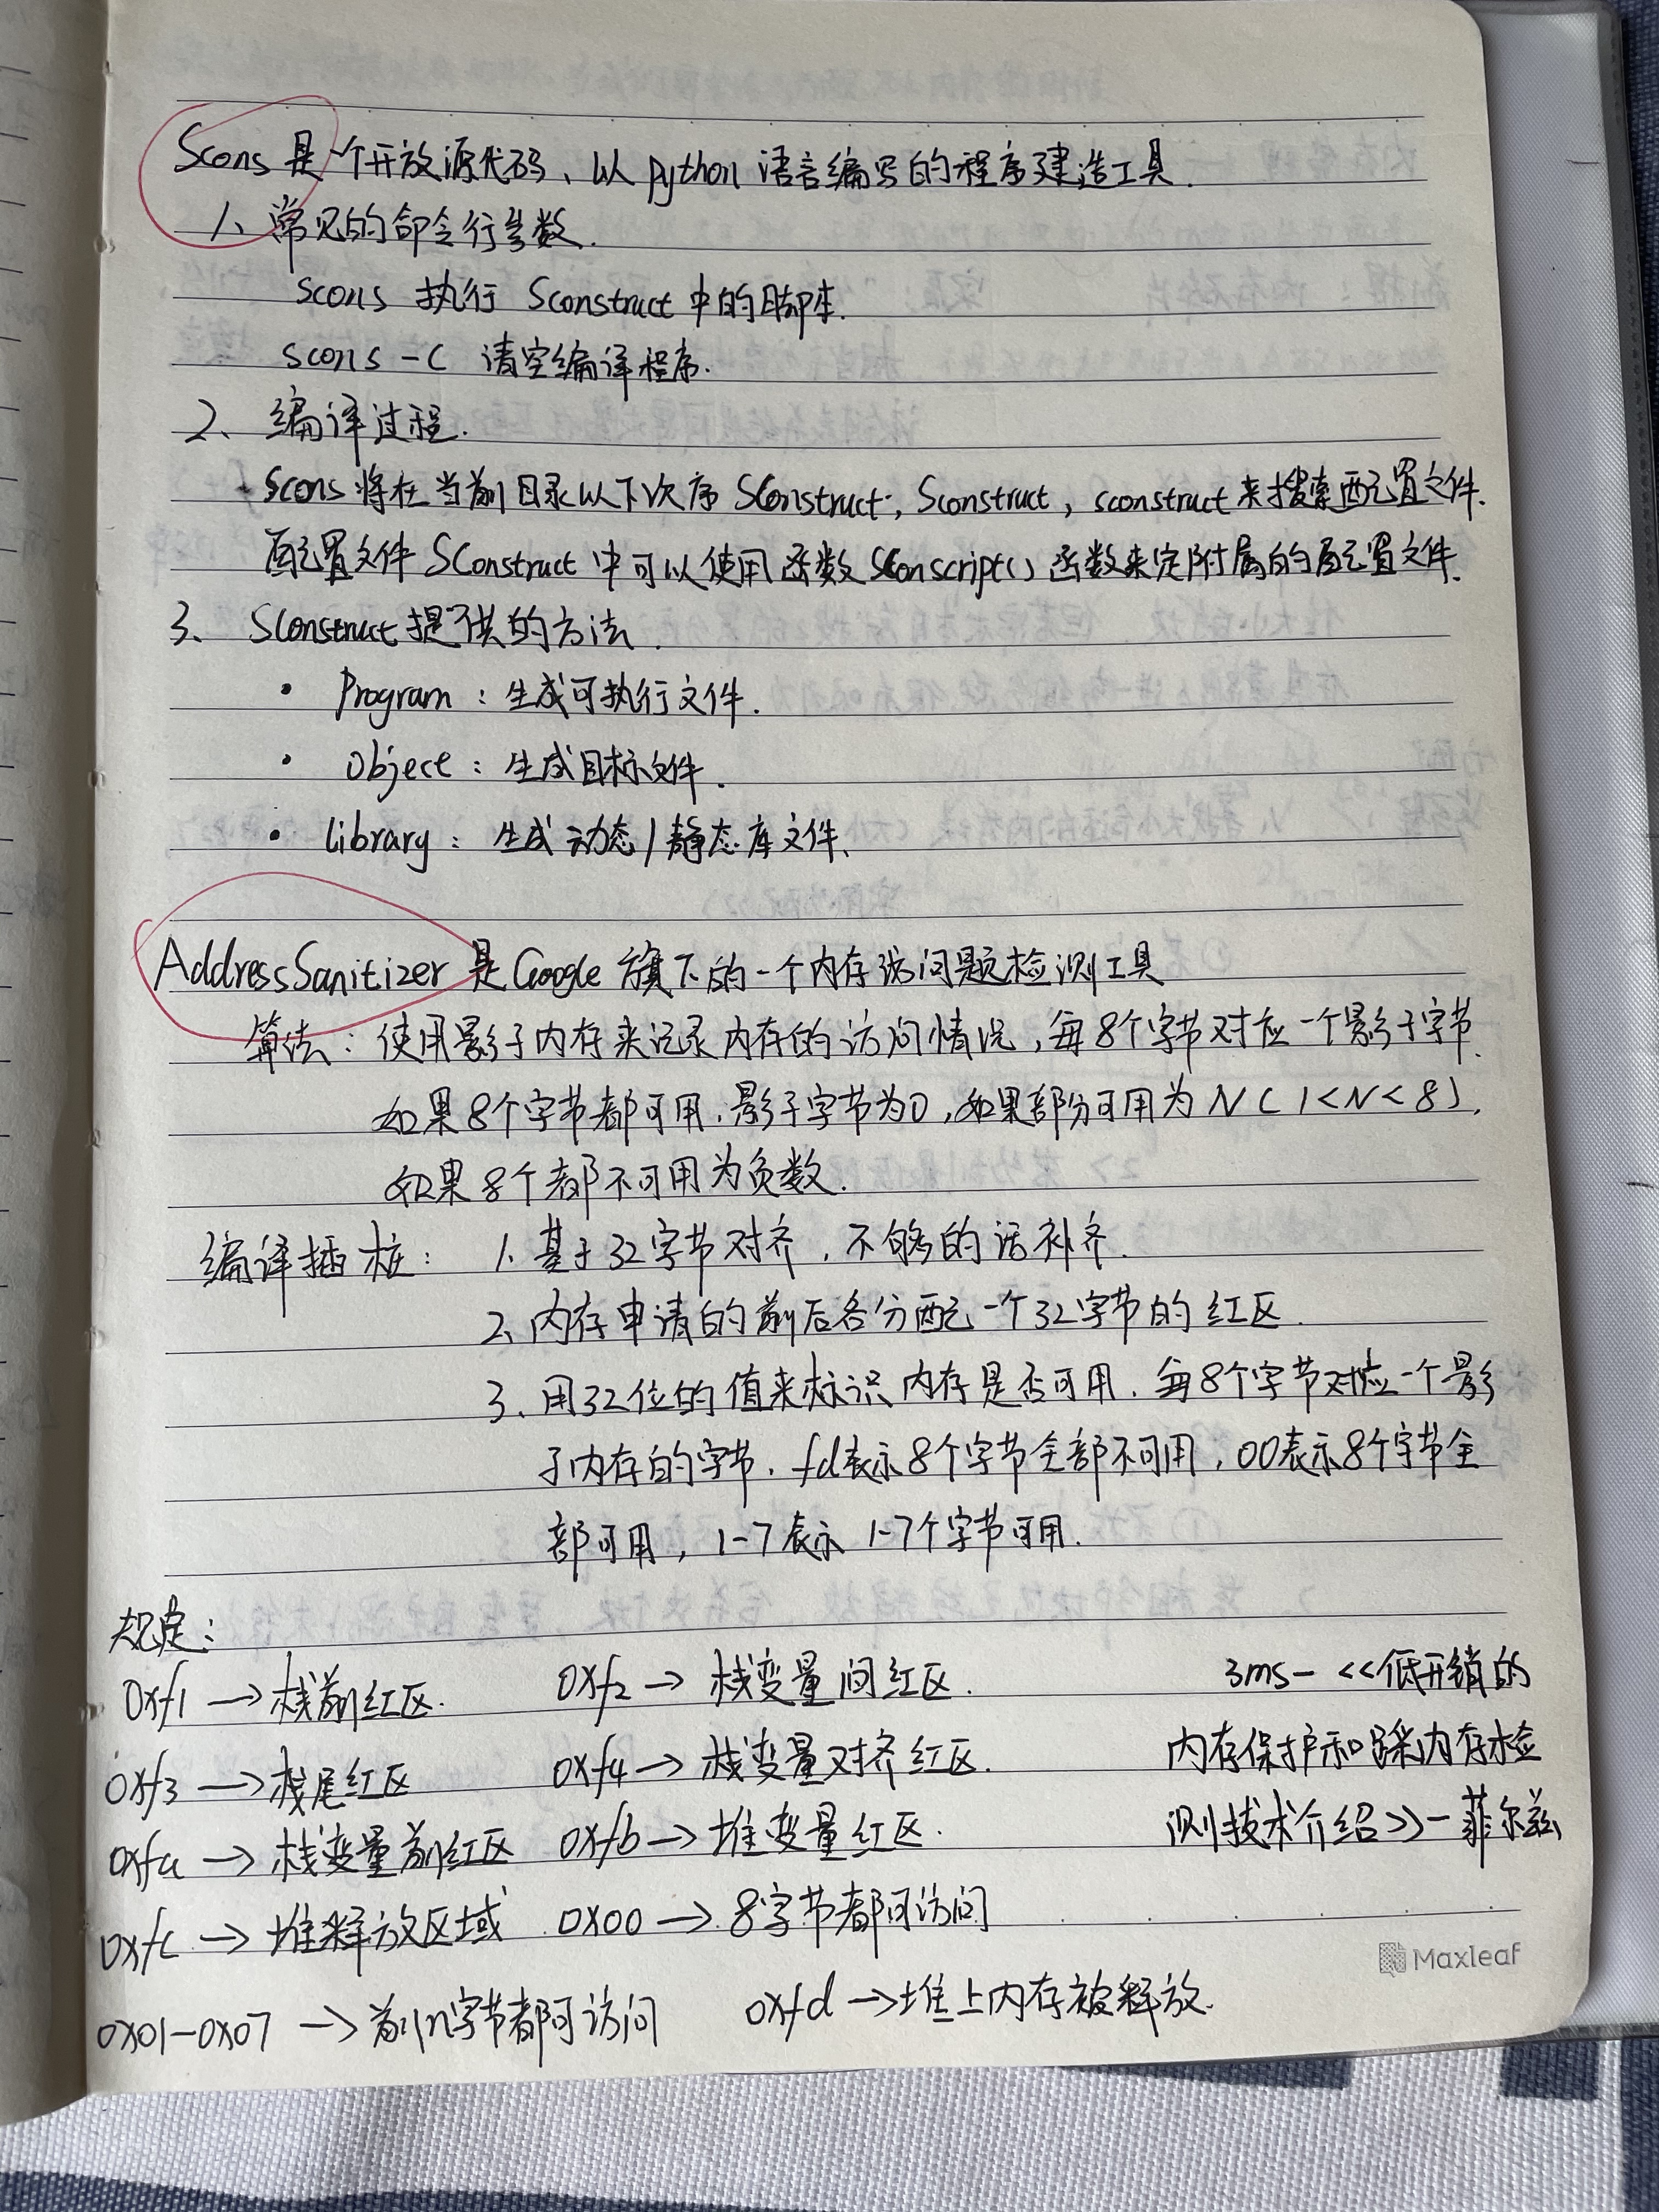 Scons是一个开放源代码、以python语言编写的程序建造工具.
1、常见的命令行参数.
scons 执行 Sconstruct 中的脚本.
scons -c 清空编译程序.
2、编译过程.
Scons将在当前目录以下次序 SConstruct, Sconstruct, sconstruct来搜索配置文件.
配置文件 SConstruct 中可以使用函数 SConscript() 函数来定附属的配置文件.
3、SConstruct提供的方法.
· Program：生成可执行文件.
· Object：生成目标文件.
· Library：生成动态/静态库文件、
AddressSanitizer 是Google 旗下的一个内存访问题检测工具
算法：使用影子内存来记录内存的访问情况，每8个字节对应一个影子字节.
如果8个字节都可用,影子字节为0,如果部分可用为N(1<N<8),
如果8个都不可用为负数.
编译插桩： 1. 基于32字节对齐，不够的话补齐.
2、内存申请的前后各分配一个32字节的红区.
3、用32位的值来标识内存是否可用. 每8个字节对应一个影
子内存的字节. fd表示8个字节全部不可用，00表示8个字节全
部可用，1-7表示 1-7个字节可用.
规定：
0xf1 → 栈前红区. 0xf2 → 栈变量间红区.
0xf3 → 栈尾红区 0xf4 → 栈变量对齐红区.
0xfa → 栈变量前红区 0xfb → 堆变量红区.
0xfc → 堆释放区域 0x00 → 8字节都可访问
0x01-0x07 → 前n字节都可访问 0xfd → 堆上内存被释放.
3ms- <<低开销的
内存保护和踩内存检
测技术介绍>>-菲尔兹
Maxleaf